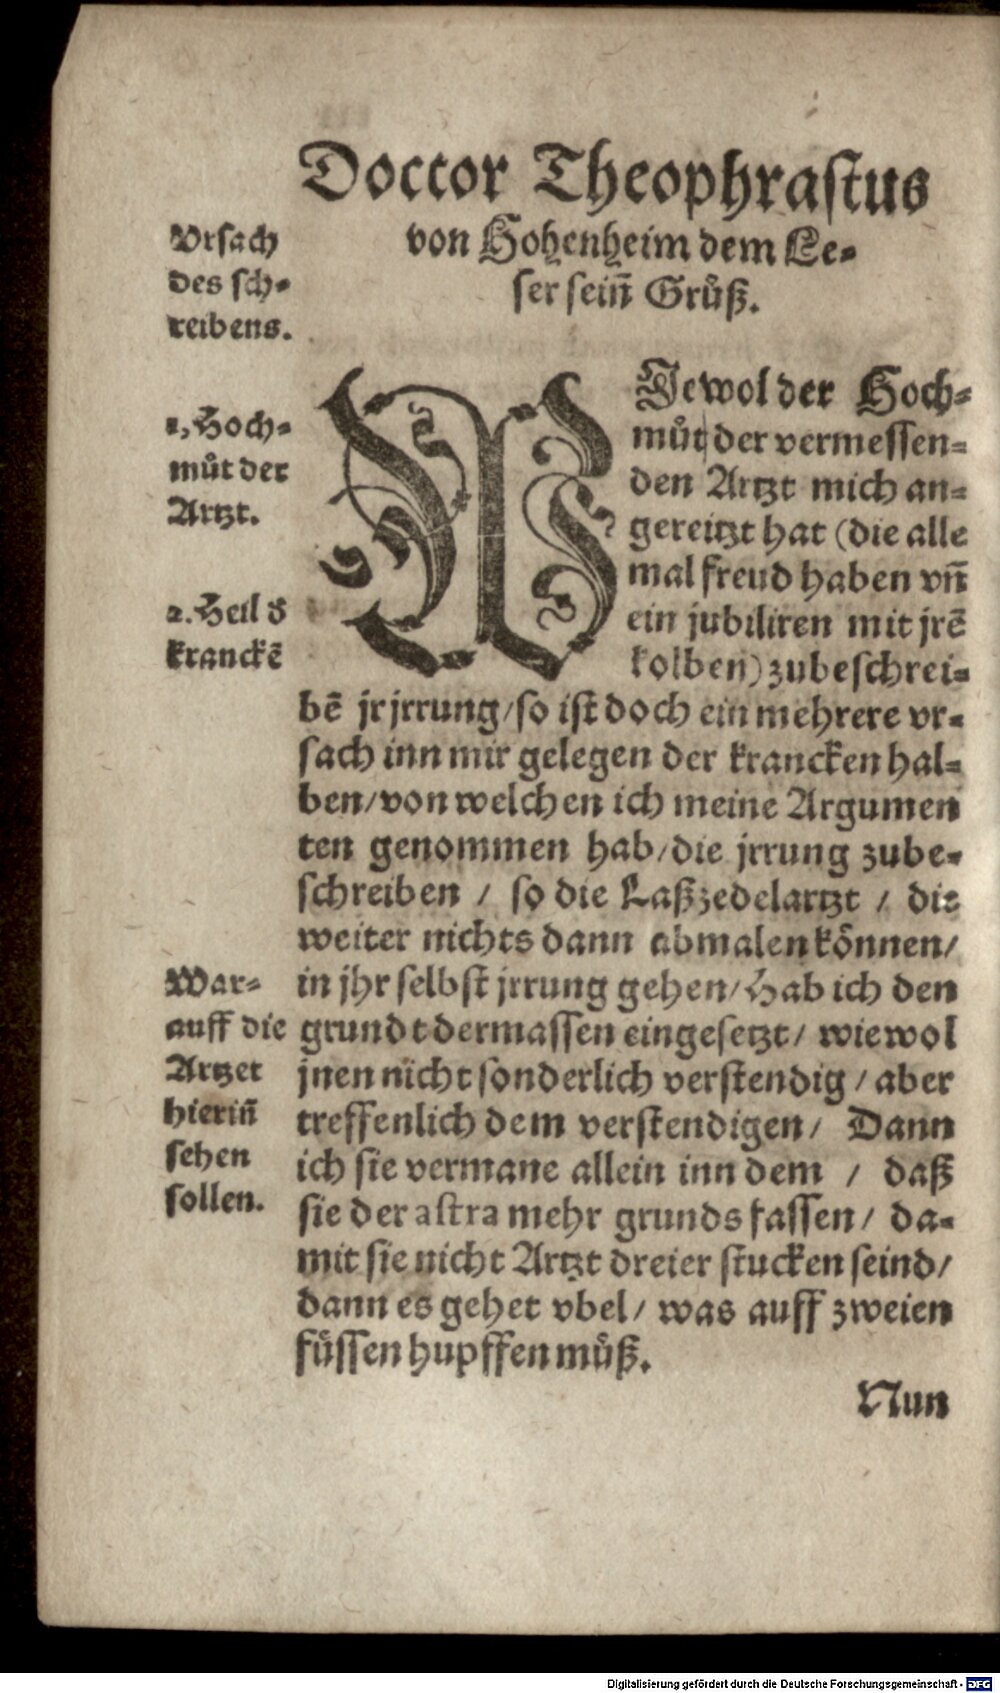 Doctor Theophrastus
von Hohenheim dem Le-
ser sein̄ Grůß.
Vrsach
des sch-
reibens.
1, Hoch-
můt der
Artzt.
2. Heil d̕
kranckē
WJewol der Hoch-
můt der vermessen-
den Artzt mich an-
gereitzt hat (die alle
mal freud haben vn̄
ein jubiliren mit jrē
kolben) zubeschrei-
bē jr jrrung/so ist doch ein mehrere vr-
sach inn mir gelegen der krancken hal-
ben/von welchen ich meine Argumen
ten genommen hab/die jrrung zube-
schreiben / so die Laßzedelartzt / die
weiter nichts dann abmalen können/
in jhr selbst jrrung gehen/Hab ich den
grundt dermassen eingesetzt/ wiewol
jnen nicht sonderlich verstendig / aber
treffenlich dem verstendigen/ Dann
ich sie vermane allein inn dem / daß
sie der astra mehr grunds fassen/ da-
mit sie nicht Artzt dreier stucken seind/
dann es gehet vbel/ was auff zweien
fůssen hupffen můß.
War-
auff die
Artzet
hierin̄
sehen
sollen.
Nun
Digitalisierung gefördert durch die Deutsche Forschungsgemeinschaft - DFG